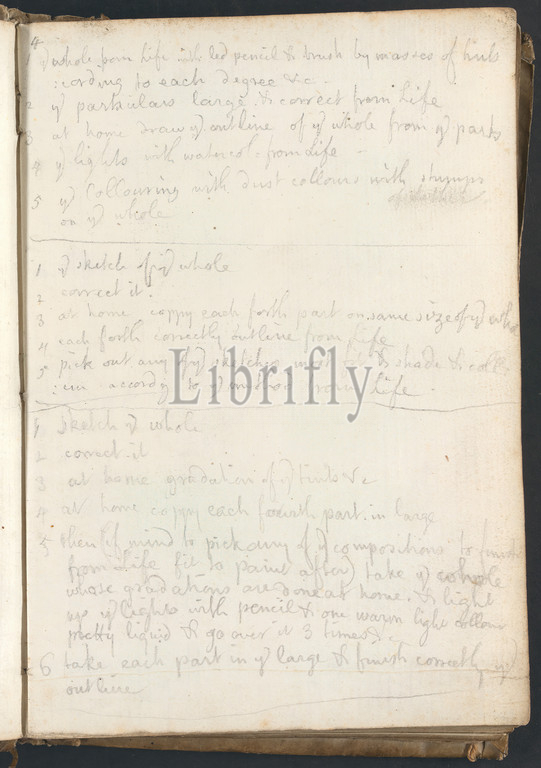 4
1 ye whole from Life with led pencil & brush by masses of tints
:cording to each degree &c -
2 ye particulars large & correct from Life
3 at home draw ye outline of ye whole from ye parts
4 ye lights with watercol: from Life -
5 ye Collouring with dust collours with stumps
of leather
on ye whole
1 ye sketch of ye whole
2 correct it.
3 at home coppy each forth part on same size of ye whole
4 each forth correctly outline from Life
5 pick out any of ye sketches & shade & coll:
accordg to ye method from Life
Librifly
1 sketch ye whole
2 correct it
3 at home gradation of ye tints &c
4 at home coppy each fourth part in large
5 then if mind to pick any of ye compositions to finish
from Life fit to paint after) take ye whole
whose gradations are done at home, & light
up ye lights with pencil & one warm light collour
pretty liquid & go over it 3 times &c
6 take each part in ye large & finish correctly ye
outline